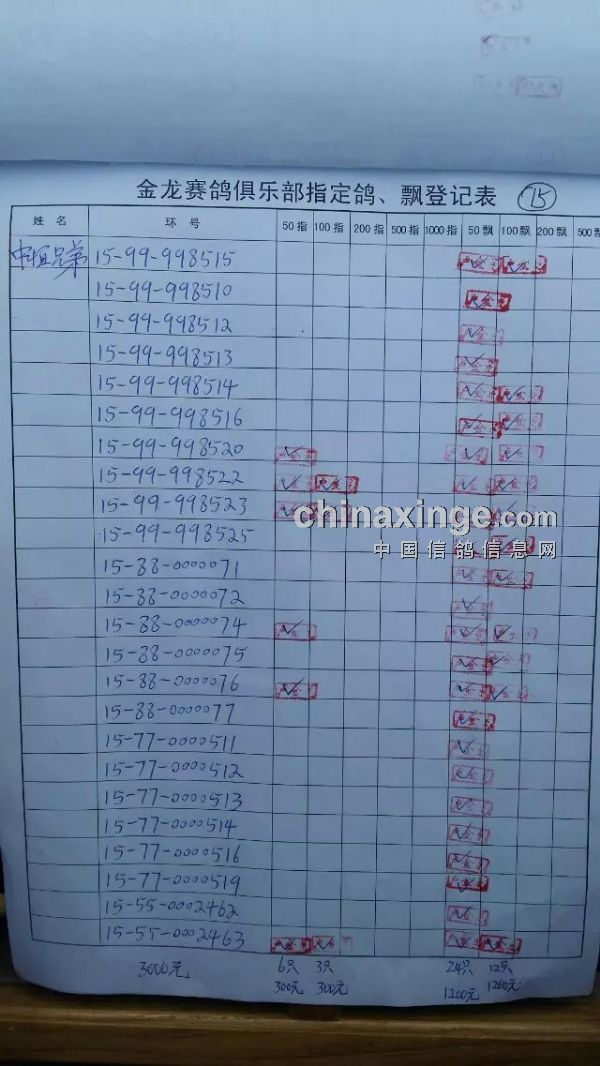 金龙赛鸽俱乐部指定鸽、飘登记表 75
姓名 环号 50指 100指 200指 500指 1000指 50飘 100飘 200飘 500飘
中恒兄弟 15-99-998515
15-99-998510
15-99-998512
15-99-998513
15-99-998514
15-99-998516
15-99-998520
15-99-998522
15-99-998523
15-99-998525
15-88-0000071
15-88-0000072
15-88-0000074
15-88-0000075
15-88-0000076
15-88-0000077
15-77-0000511
15-77-0000512
15-77-0000513
15-77-0000514
15-77-0000516
15-77-0000519
15-55-0002462
15-55-0002463
3000元 6只 3只 24只 12只
300元 300元 1200元 1200元
chinaxinge.com
中国信鸽信息网